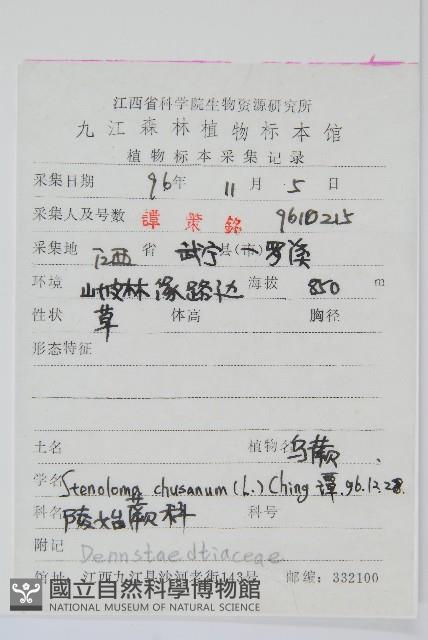 江西省科学院生物资源研究所
九江森林植物标本馆
植物标本采集记录
采集日期 96年 11月 5日
采集人及号数 譚策銘 9610215
采集地 江西省 武宁县(市) 罗溪
环境 山坡林缘路边 海拔 850 m
性状 草 体高 胸径
形态特征
土名 植物名 乌蕨
学名 Stenoloma chusanum (L.) Ching 譚 96.12.28.
科名 陵齿蕨科 科号
附记 Dennstaedtiaceae
馆址 江西九江县沙河老街143号 邮编: 332100
國立自然科學博物館
NATIONAL MUSEUM OF NATURAL SCIENCE